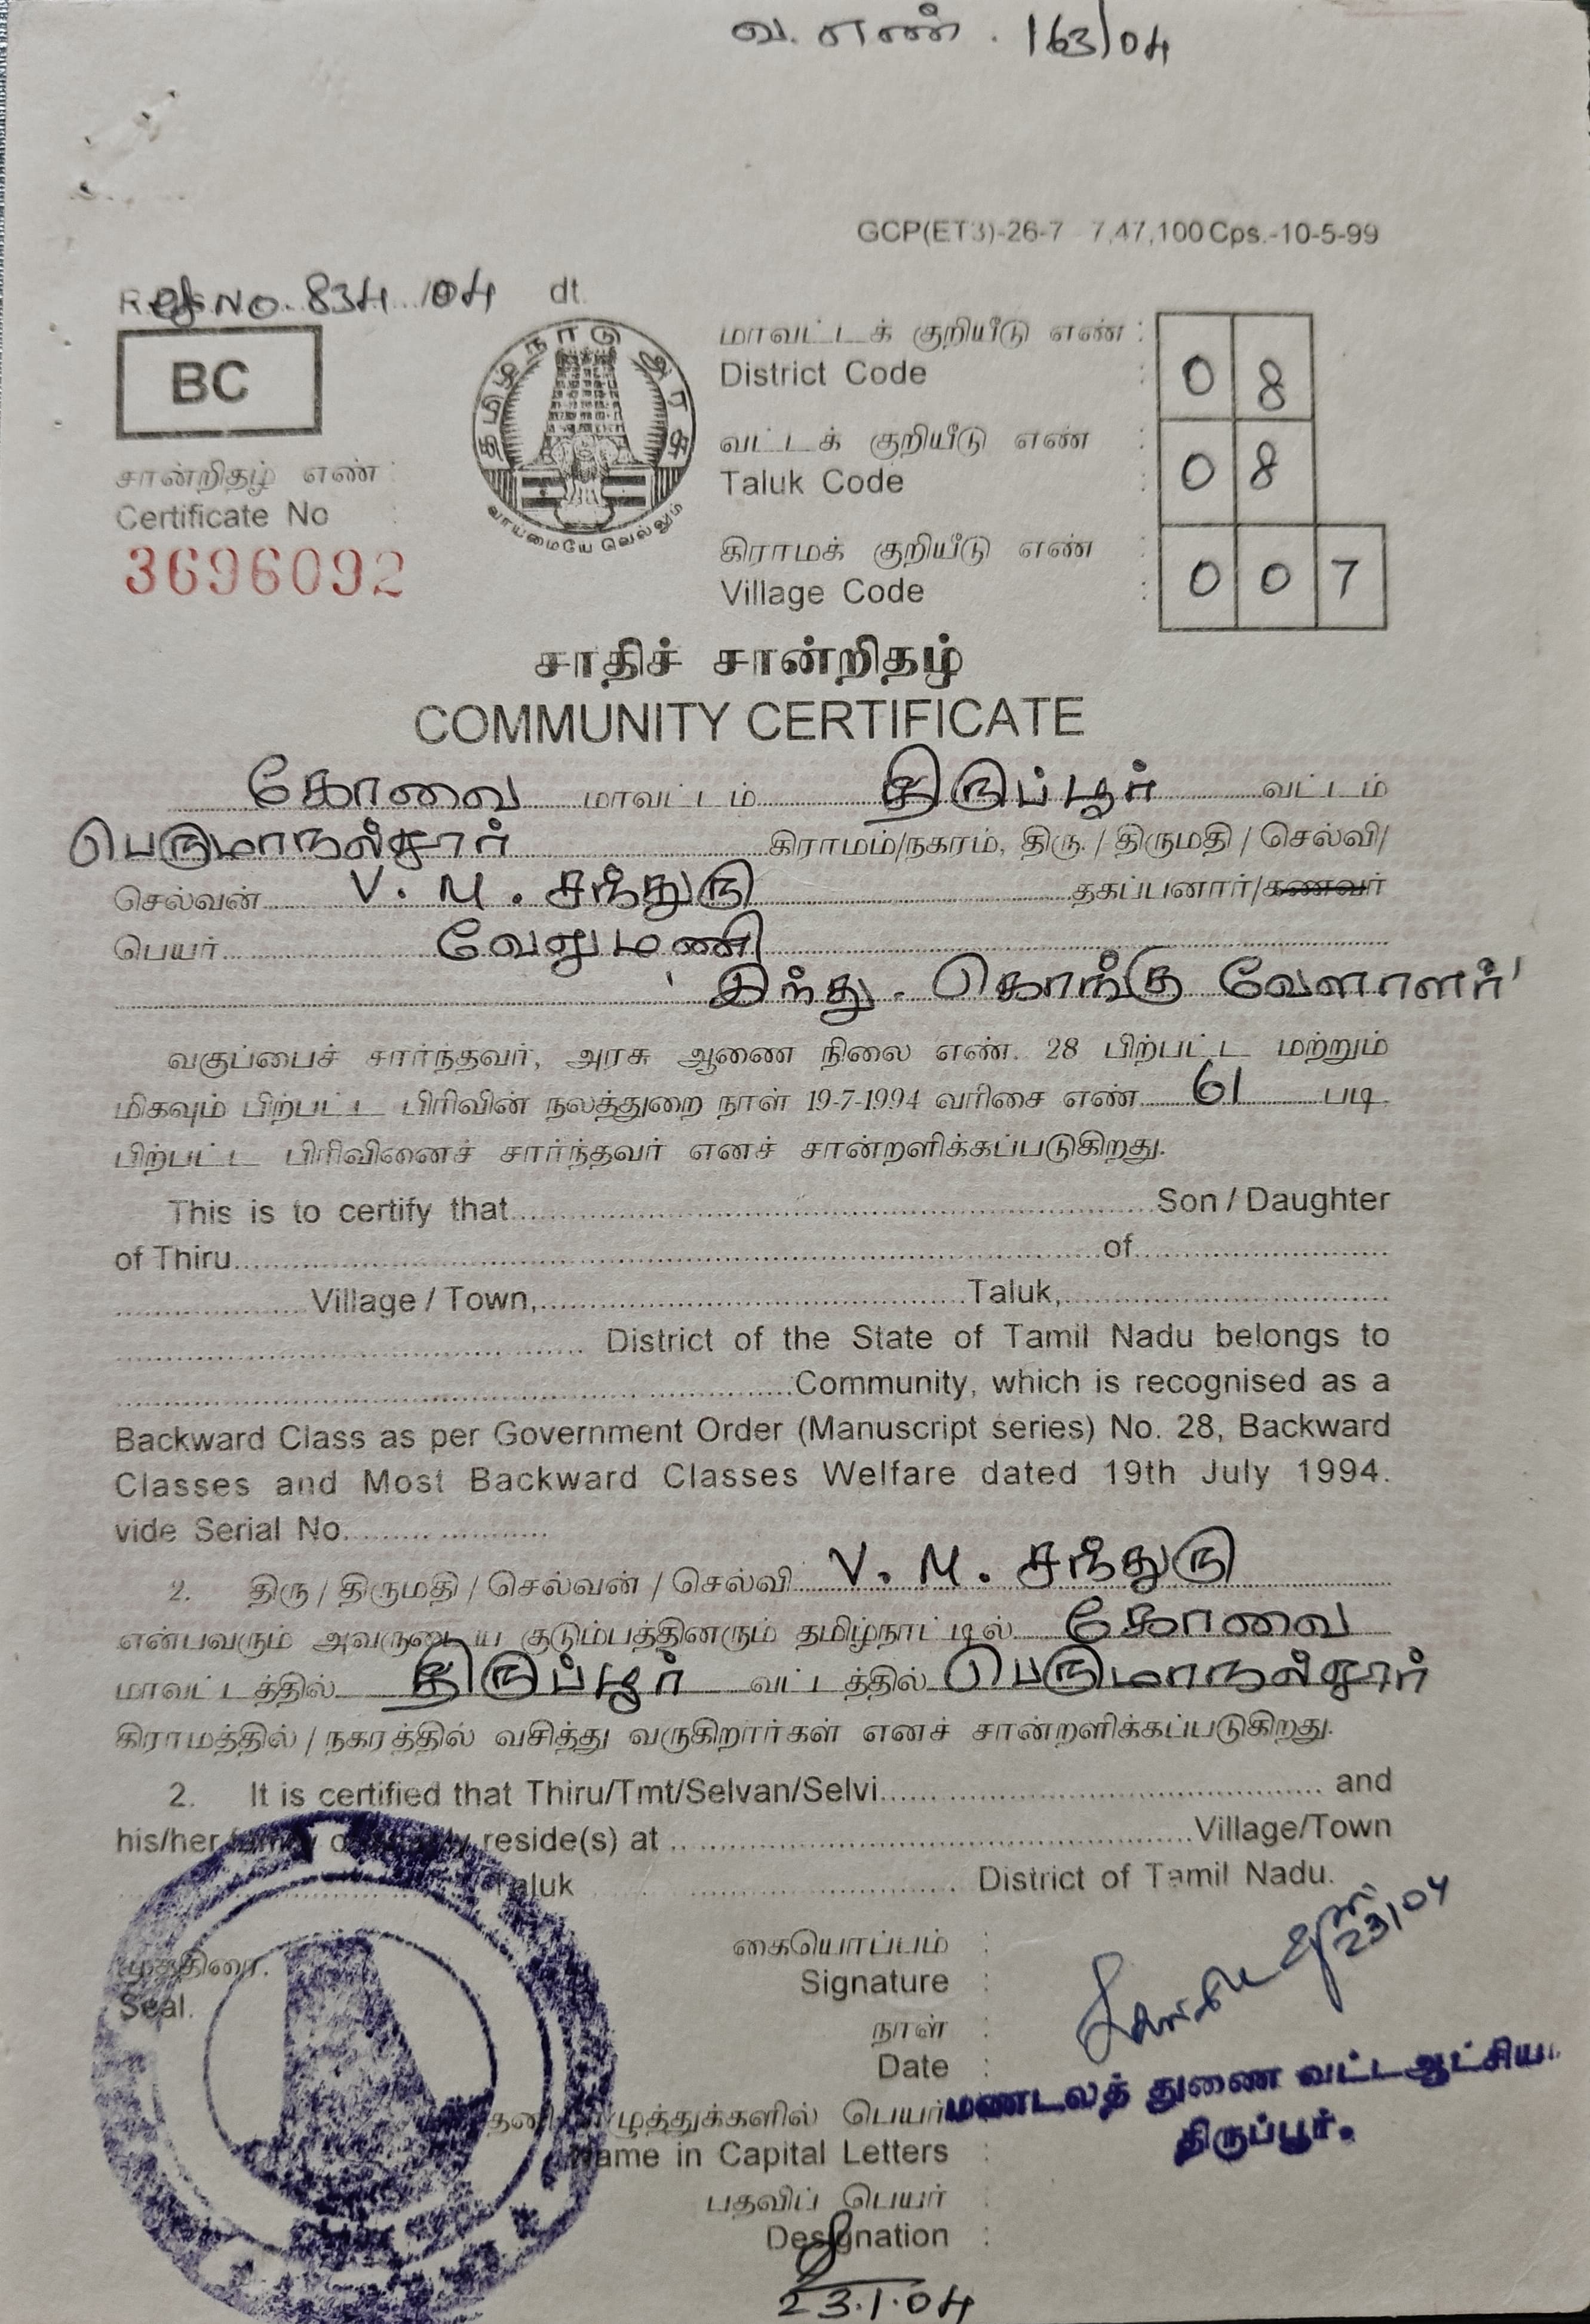 வ. எண். 163/04
GCP(ET3)-26-7 7,47,100 Cps.-10-5-99
Ref No. 834/04 dt.
BC
தமிழ்நாடு அரசு
வாய்மையே வெல்லும்
மாவட்டக் குறியீடு எண் : 0 8
District Code :
வட்டக் குறியீடு எண் : 0 8
Taluk Code :
கிராமக் குறியீடு எண் : 0 0 7
Village Code :
சான்றிதழ் எண் :
Certificate No :
3696092
சாதிச் சான்றிதழ்
COMMUNITY CERTIFICATE
கோவை மாவட்டம் திருப்பூர் வட்டம்
பெருமாநல்லூர் கிராமம்/நகரம், திரு. / திருமதி / செல்வி/
செல்வன் V. M. சந்துரு தகப்பனார்/கணவர்
பெயர் வேலுமணி
'இந்து - கொங்கு வேளாளர்'
வகுப்பைச் சார்ந்தவர், அரசு ஆணை நிலை எண். 28 பிற்பட்ட மற்றும்
மிகவும் பிற்பட்ட பிரிவின் நலத்துறை நாள் 19-7-1994 வரிசை எண் 61 படி
பிற்பட்ட பிரிவினைச் சார்ந்தவர் எனச் சான்றளிக்கப்படுகிறது.
This is to certify that Son / Daughter
of Thiru of
Village / Town, Taluk,
District of the State of Tamil Nadu belongs to
Community, which is recognised as a
Backward Class as per Government Order (Manuscript series) No. 28, Backward
Classes and Most Backward Classes Welfare dated 19th July 1994.
vide Serial No.
2. திரு / திருமதி / செல்வன் / செல்வி V. M. சந்துரு
என்பவரும் அவருடைய குடும்பத்தினரும் தமிழ்நாட்டில் கோவை
மாவட்டத்தில் திருப்பூர் வட்டத்தில் பெருமாநல்லூர்
கிராமத்தில் / நகரத்தில் வசித்து வருகிறார்கள் எனச் சான்றளிக்கப்படுகிறது.
2. It is certified that Thiru/Tmt/Selvan/Selvi and
his/her family reside(s) at Village/Town
Taluk District of Tamil Nadu.
முத்திரை.
Seal.
கையொப்பம் :
Signature :
23/1/04
நாள் :
Date :
மண்டலத் துணை வட்டஆட்சிய
திருப்பூர்.
எழுத்துக்களில் பெயர்
Name in Capital Letters :
பதவிப் பெயர் :
Designation :
23.1.04